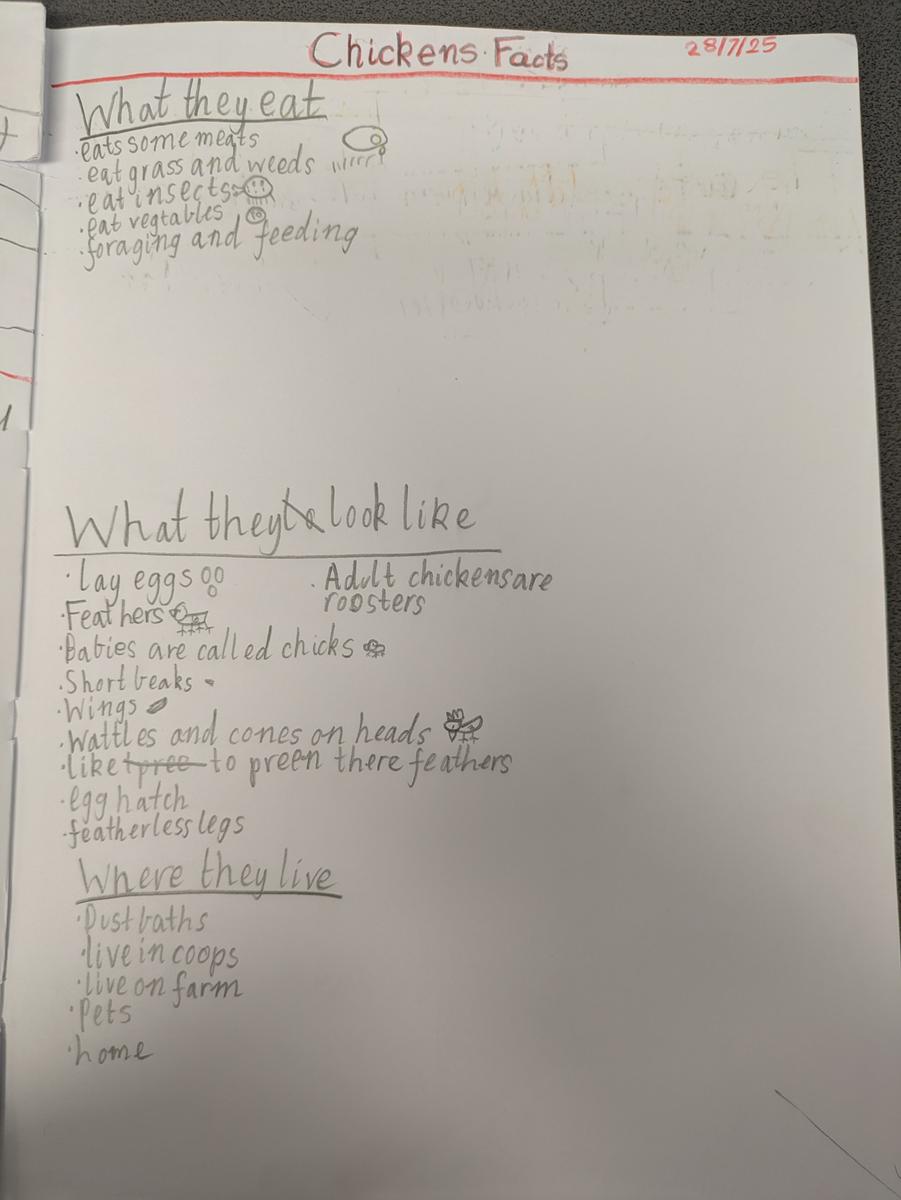 Chickens. Facts
28/7/25
What they eat
·eats some meats
·eat grass and weeds
·eat insects
·eat vegtables
·foraging and feeding
What they look like
·lay eggs
·Feathers
·Babies are called chicks
·Short beaks
·Wings
·Wattles and cones on heads
·like to preen there feathers
·egg hatch
·featherless legs
·Adult chickens are
roosters
Where they live
·Dust baths
·live in coops
·live on farm
·Pets
·home